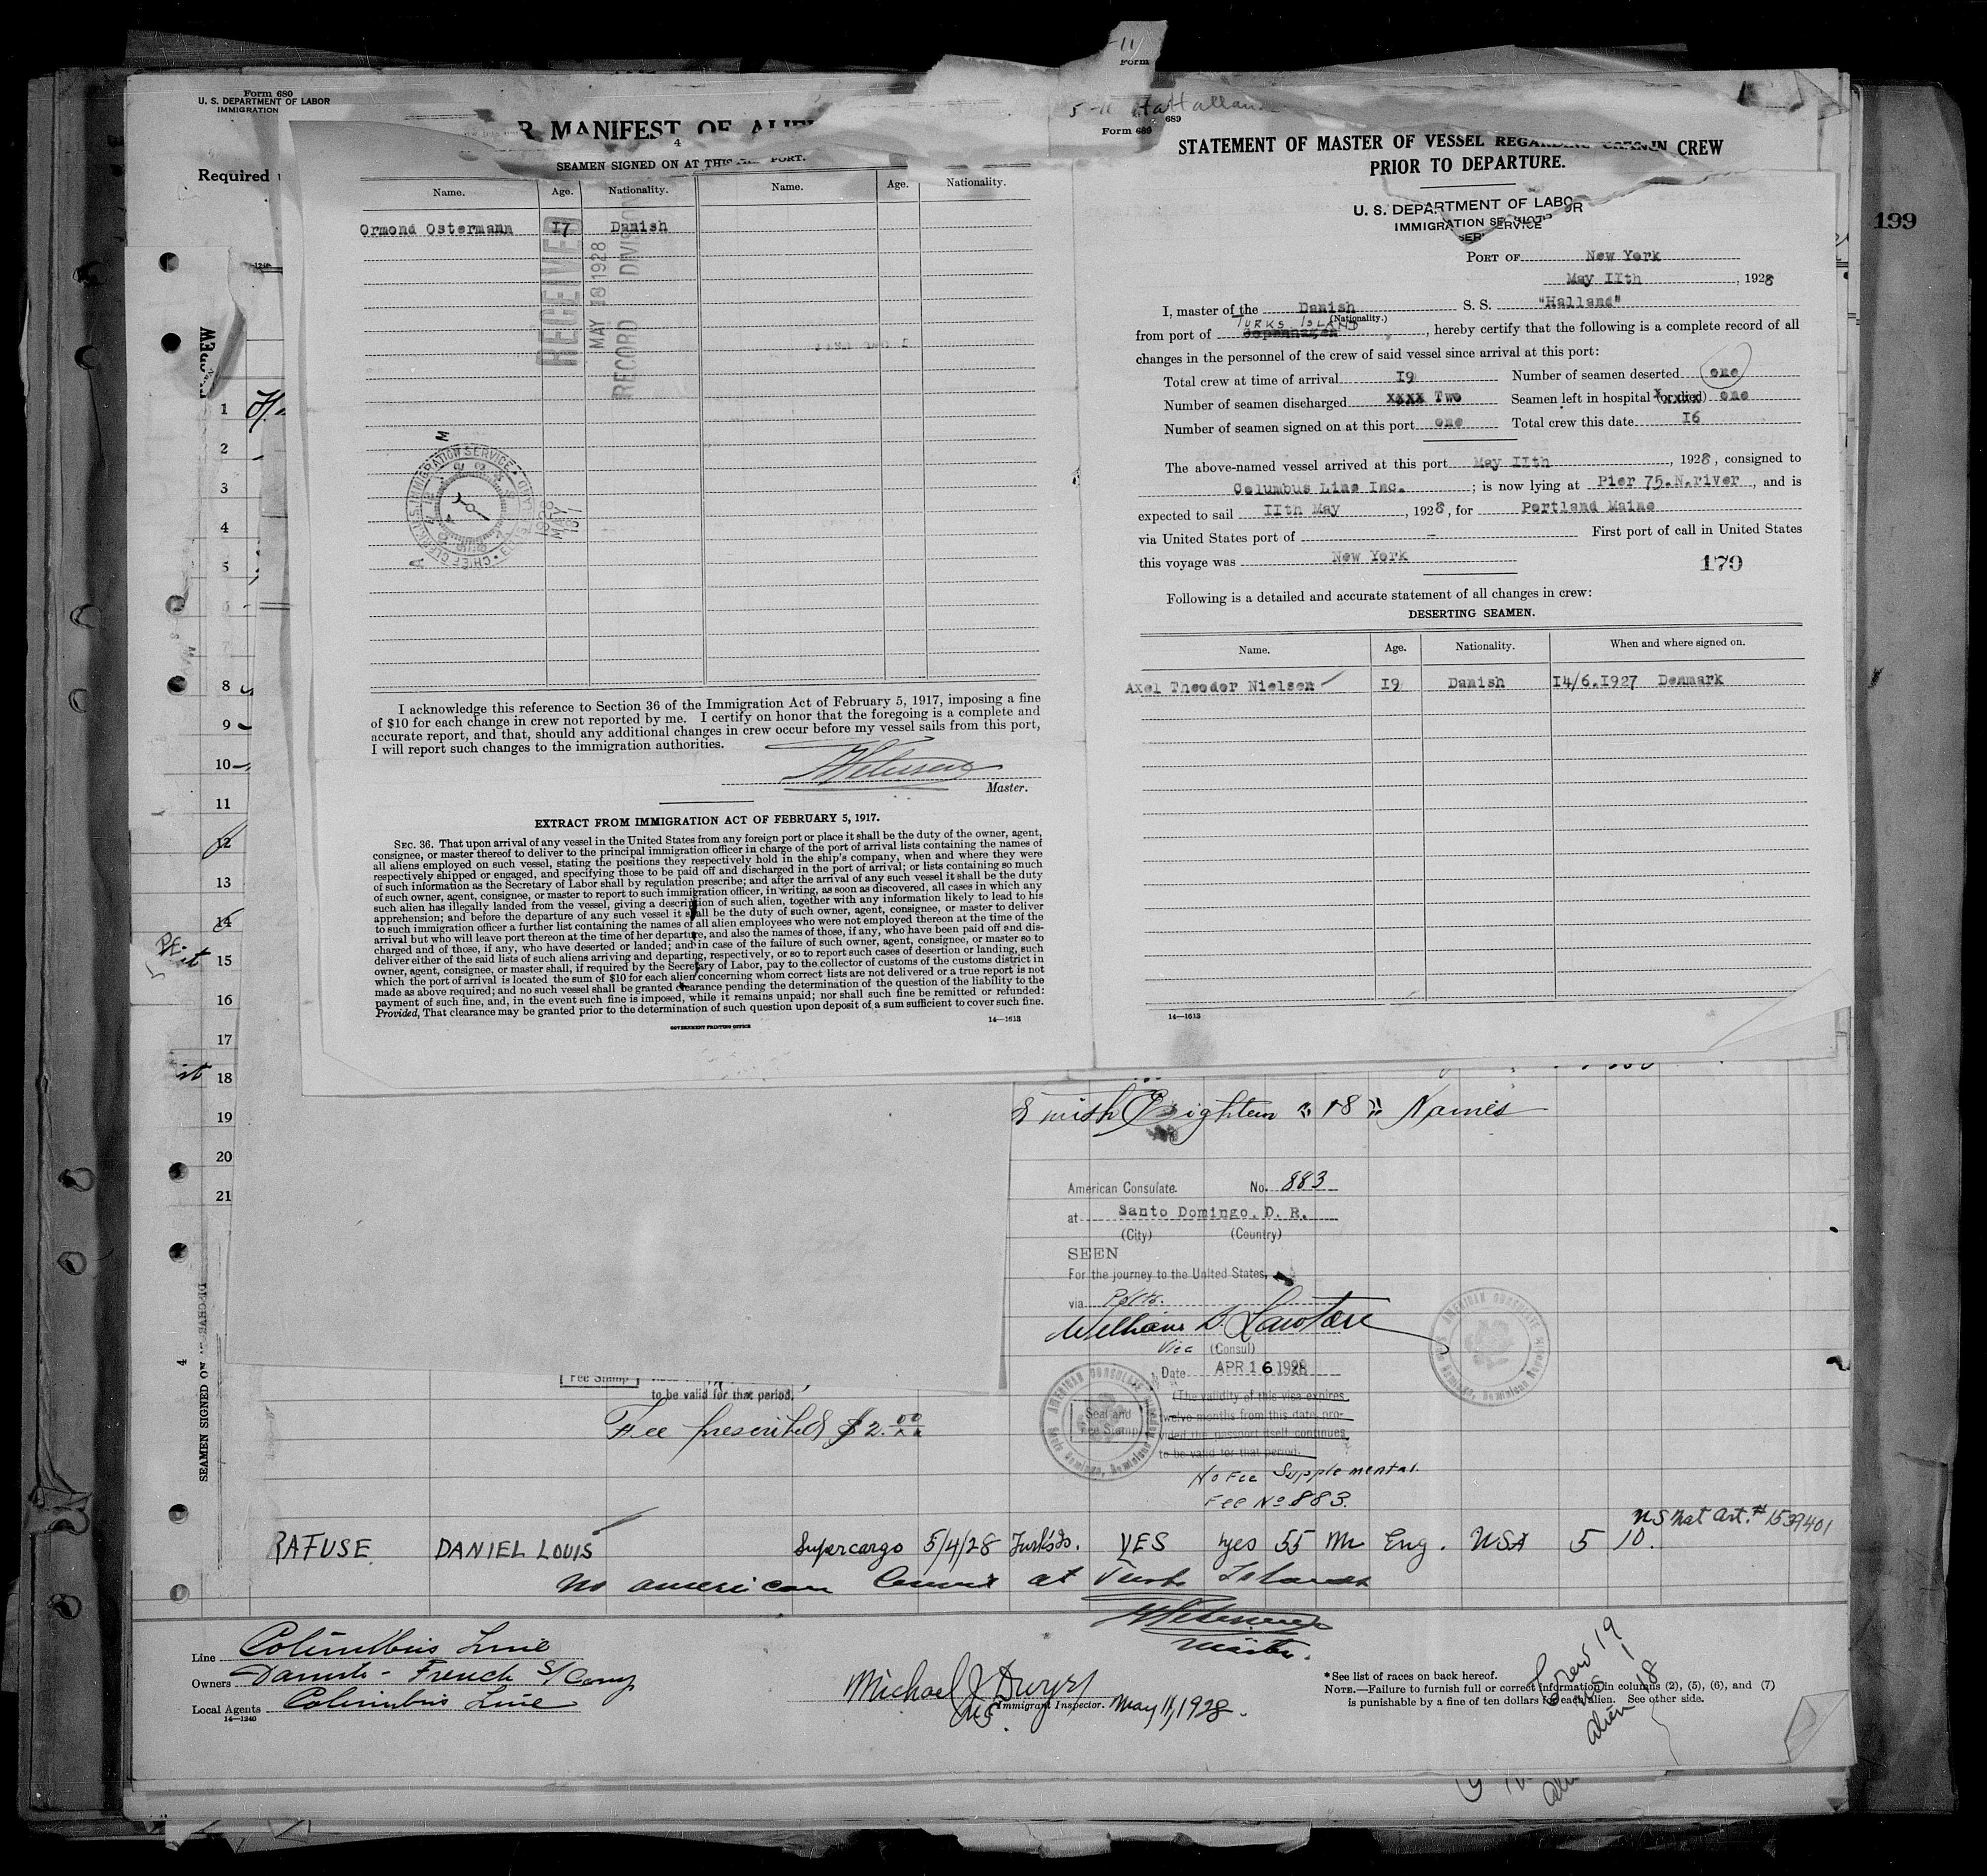 Form 680
U. S. DEPARTMENT OF LABOR
IMMIGRATION
Required
R MANIFEST OF ALIE
4
SEAMEN SIGNED ON AT THIS PORT.
Name. Age. Nationality. Name. Age. Nationality.
Ormond Ostermann 17 Danish
RECEIVED
MAY 18 1928
RECORD DIVISION
I acknowledge this reference to Section 36 of the Immigration Act of February 5, 1917, imposing a fine
of $10 for each change in crew not reported by me. I certify on honor that the foregoing is a complete and
accurate report, and that, should any additional changes in crew occur before my vessel sails from this port,
I will report such changes to the immigration authorities.
Master.
EXTRACT FROM IMMIGRATION ACT OF FEBRUARY 5, 1917.
SEC. 36. That upon arrival of any vessel in the United States from any foreign port or place it shall be the duty of the owner, agent,
consignee, or master thereof to deliver to the principal immigration officer in charge of the port of arrival lists containing the names of
all aliens employed on such vessel, stating the positions they respectively hold in the ship's company, when and where they were
respectively shipped or engaged, and specifying those to be paid off and discharged in the port of arrival; or lists containing so much
of such information as the Secretary of Labor shall by regulation prescribe; and after the arrival of any such vessel it shall be the duty
of such owner, agent, consignee, or master to report to such immigration officer, in writing, as soon as discovered, all cases in which any
such alien has illegally landed from the vessel, giving a description of such alien, together with any information likely to lead to his
apprehension; and before the departure of any such vessel it shall be the duty of such owner, agent, consignee, or master to deliver
to such immigration officer a further list containing the names of all alien employees who were not employed thereon at the time of the
arrival but who will leave port thereon at the time of her departure, and also the names of those, if any, who have been paid off and dis-
charged and of those, if any, who have deserted or landed; and in case of the failure of such owner, agent, consignee, or master so to
deliver either of the said lists of such aliens arriving and departing, respectively, or so to report such cases of desertion or landing, such
owner, agent, consignee, or master shall, if required by the Secretary of Labor, pay to the collector of customs of the customs district in
which the port of arrival is located the sum of $10 for each alien concerning whom correct lists are not delivered or a true report is not
made as above required; and no such vessel shall be granted clearance pending the determination of the question of the liability to the
payment of such fine, and, in the event such fine is imposed, while it remains unpaid; nor shall such fine be remitted or refunded:
Provided, That clearance may be granted prior to the determination of such question upon deposit of a sum sufficient to cover such fine.
GOVERNMENT PRINTING OFFICE
14—1613
Form
689
Form 689
STATEMENT OF MASTER OF VESSEL REGARDING CREW
PRIOR TO DEPARTURE.
U. S. DEPARTMENT OF LABOR
IMMIGRATION SERVICE
PORT OF New York
May 11th, 1928
I, master of the Danish S. S. "Halland"
(Nationality.)
TURKS ISLAND
from port of Copenhagen, hereby certify that the following is a complete record of all
changes in the personnel of the crew of said vessel since arrival at this port:
Total crew at time of arrival 19 Number of seamen deserted one
Number of seamen discharged xxxx Two Seamen left in hospital (or died) one
Number of seamen signed on at this port one Total crew this date 16
The above-named vessel arrived at this port May 11th, 1928, consigned to
Columbus Line Inc.; is now lying at Pier 75.N.river, and is
expected to sail 11th May, 1928, for Portland Maine
via United States port of - First port of call in United States
this voyage was New York
170
Following is a detailed and accurate statement of all changes in crew:
DESERTING SEAMEN.
Name. Age. Nationality. When and where signed on.
Axel Theodor Nielsen 19 Danish 14/6.1927 Denmark
14—1613
199
1
2
3
4
5
6
7
8
9
10
11
12
13
14
15
16
17
18
19
20
21
SEAMEN SIGNED ON
4
Eighteen "18" Names
American Consulate. No. 883
at Santo Domingo, D. R.
(City) (Country)
SEEN
For the journey to the United States,
via Ports.
Vice (Consul)
Date APR 16 1928
(The validity of this visa expires
twelve months from this date, pro-
vided the passport itself continues
to be valid for that period.
Seal and
Fee Stamp
AMERICAN CONSULATE
Santo Domingo, Dominican Republic
No Fee Supplemental.
Fee No 883.
Fee Stamp
to be valid for that period.
Fee prescribed $2.00
US Nat Art. # 1539401
RAFUSE DANIEL LOUIS Supercargo 5/4/28 Turks Is. YES yes 55 M Eng. USA 5 10.
No american Consul at Turks Islands
Master.
Line Columbus Line
Owners Danish - French S/Comp
Local Agents Columbus Line
14—1240
Michael J Dwyer
Immigrant Inspector. May 11, 1928.
*See list of races on back hereof.
NOTE.—Failure to furnish full or correct information in columns (2), (5), (6), and (7)
is punishable by a fine of ten dollars for each alien. See other side.
Crew 19
US 1
alien 18